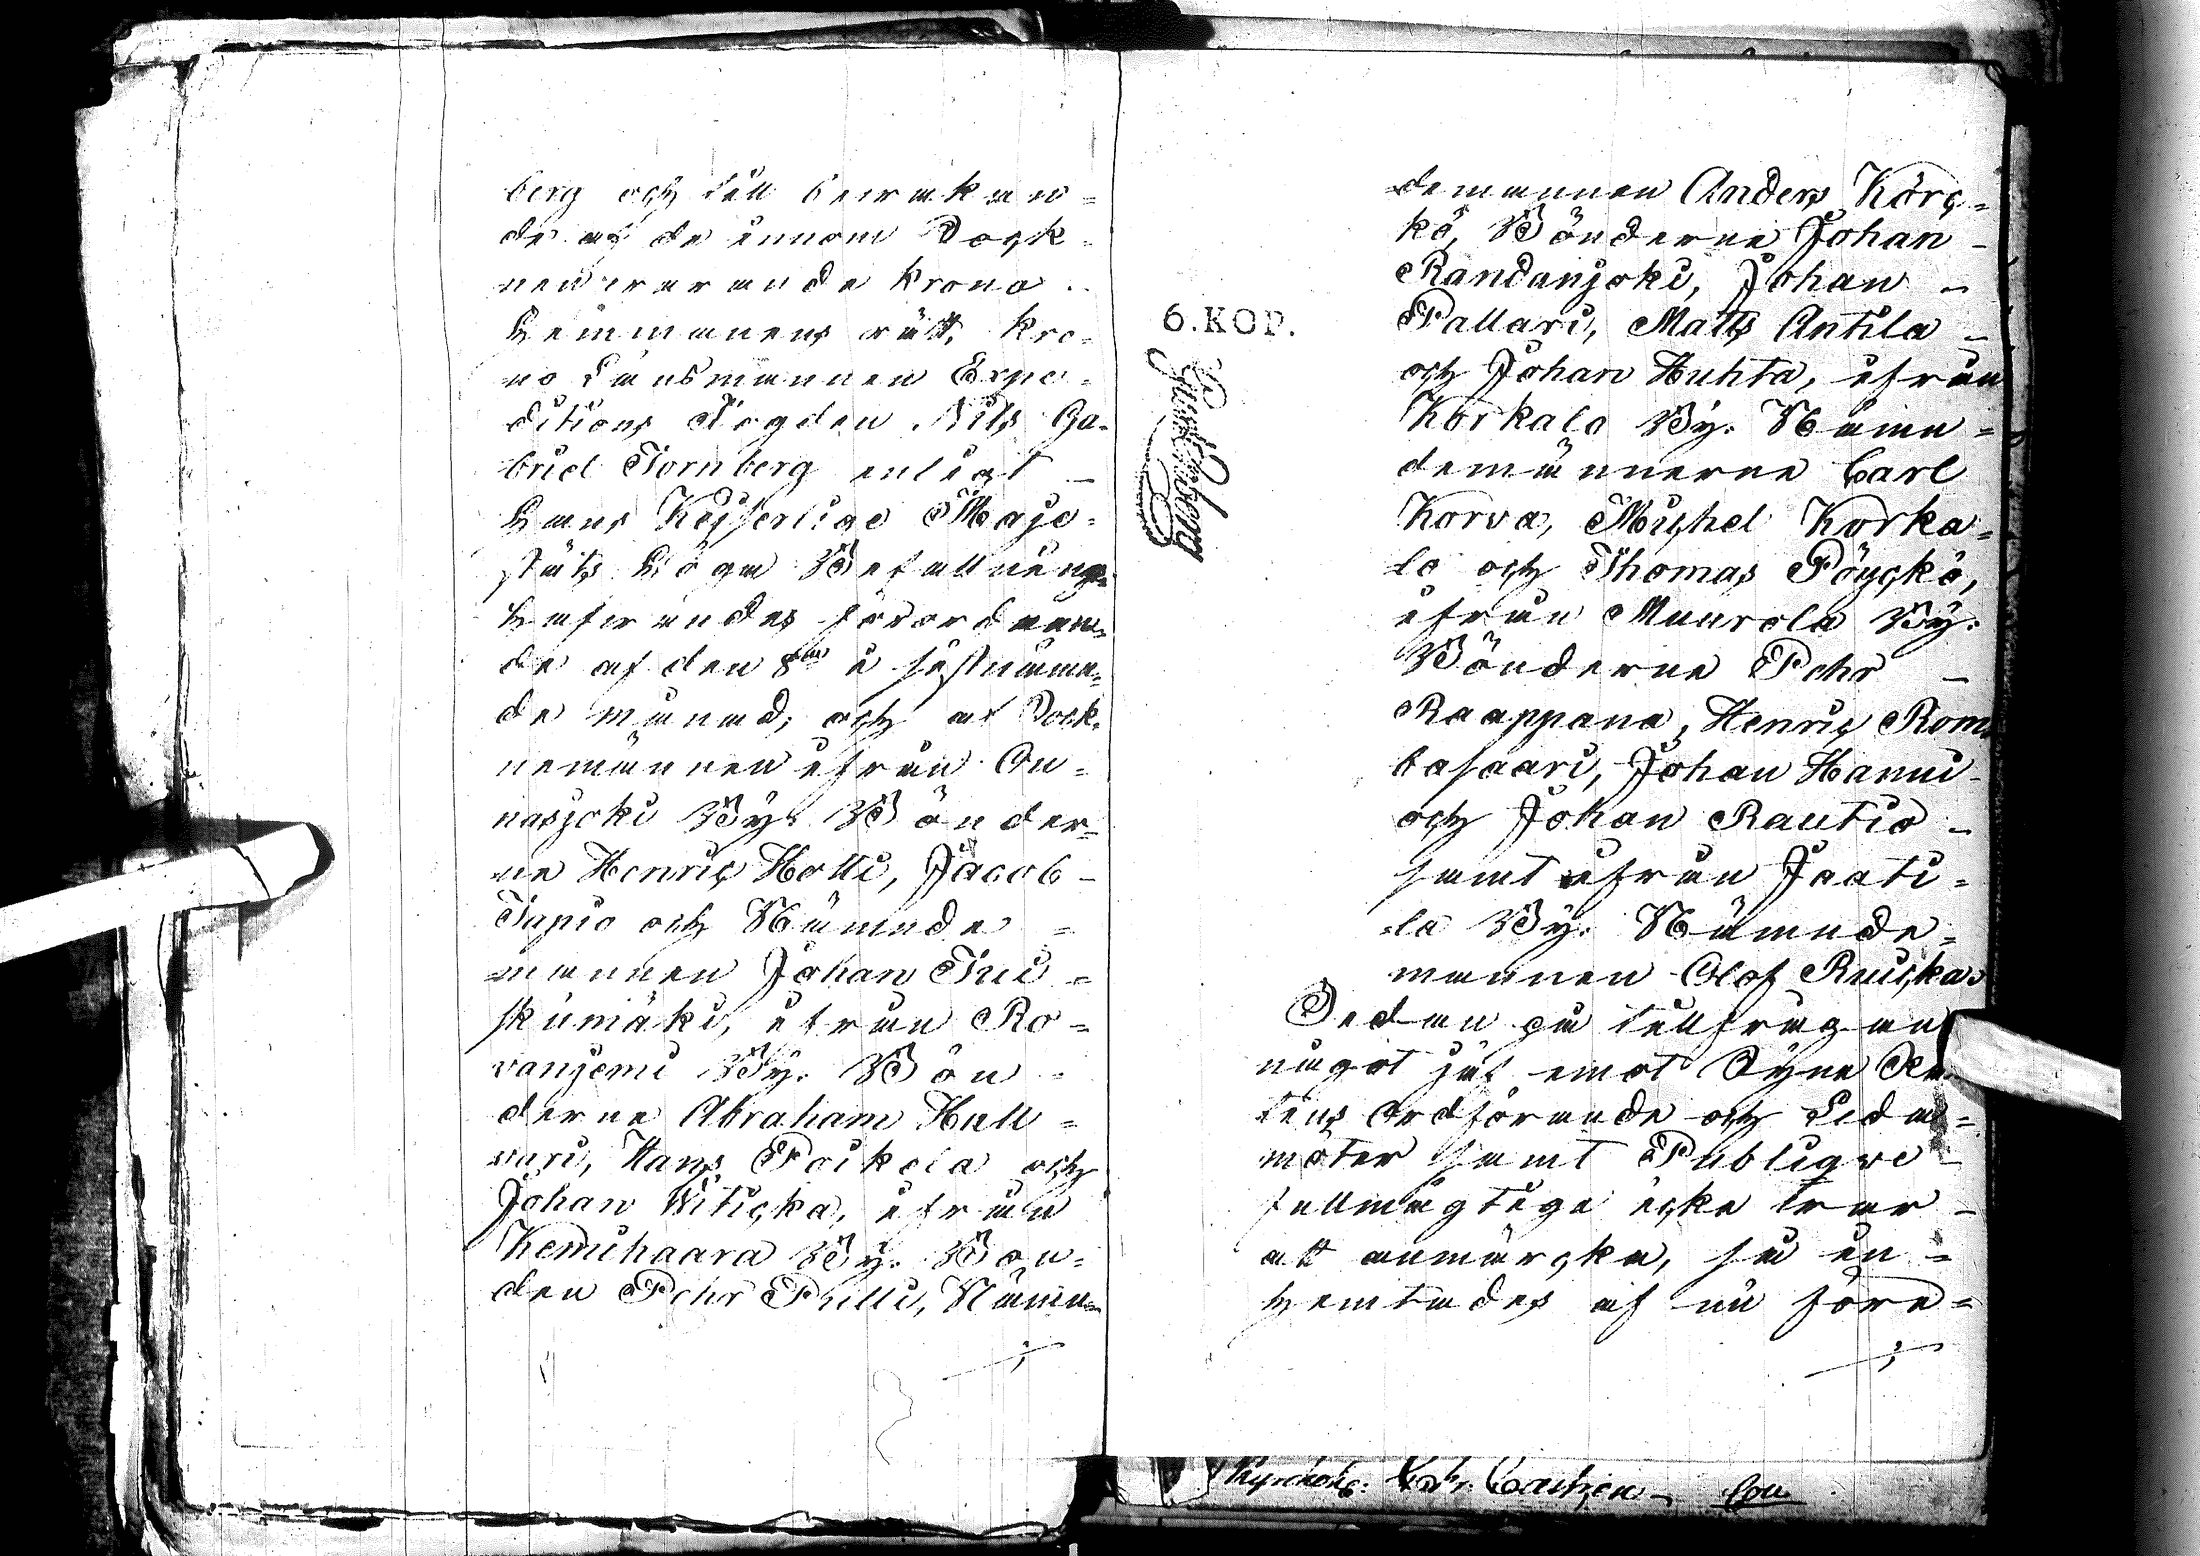 berg och till bewakan=
de af de innom Sock=
nen warande krono
Hemmanens rätt, kro=
no Länsmannen Expe=
ditions Fogden Nils Ga=
briel Tornberg enligt
Hans Kejserlige Maje=
stäts Höga Befallnings
hafwandes förordnan=
de af den 8de i sistnämn=
de månad, och af Sock=
nemännen ifrån On=
nasjoki By. Bönder=
ne Henric Holli, Jacob
Tapio och Nämnde=
mannen Johan Tui=
skumäki, ifrån Ro=
vaniemi By. Bön=
derne Abraham Hall=
vari, Hans Poikela och
Johan Viticka, ifrån
Kemihaara By. Bon=
den Pehr Pulli, Nämn=
demannen Anders Körc=
kö, Bönderne Johan
Randanjoki, Johan
6. KOP.
Pallari, Matts Antila
och Johan Huhta, ifrån
Korkalo By. Nämn=
demännerne Carl
Korva, Michel Korka=
lo och Thomas Pöyckö,
ifrån Muurola By.
Bönderne Pehr
Raappana, Henric Rom=
basaari, Johan Hanni
och Johan Rautio
samt ifrån Jaati=
la By. Nämnde=
mannen Olof Ruicka.
Sedan på tillfrågan
något jäf emot Syne Rä
tens Ordförande och Leda=
möter samt Publiqve
fullmägtige icke war
att anmärcka, så in=
hemtades af nu före=